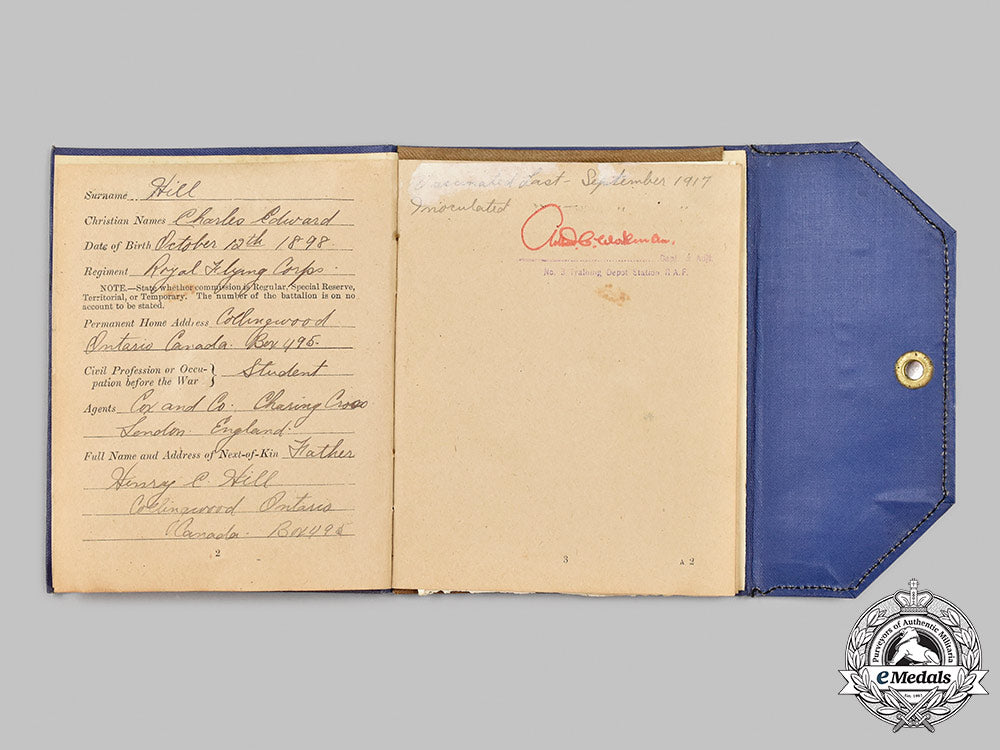 Surname Hill
Christian Names Charles Edward
Date of Birth October 12th 1898
Regiment Royal Flying Corps.
NOTE.—State whether commission is Regular, Special Reserve,
Territorial, or Temporary. The number of the battalion is on no
account to be stated.
Permanent Home Address Collingwood
Ontario Canada. Box 495.
Civil Profession or Occu-
pation before the War } Student
Agents Cox and Co. Charing Cross
London. England.
Full Name and Address of Next-of-Kin Father
Henry C Hill
Collingwood Ontario
Canada. Box 495
2
Vaccinated Last - September 1917
Inoculated " " "
Capt & Adjt.
No. 3 Training Depot Station R.A.F.
3 A 2
Purveyors of Authentic Militaria
eMedals